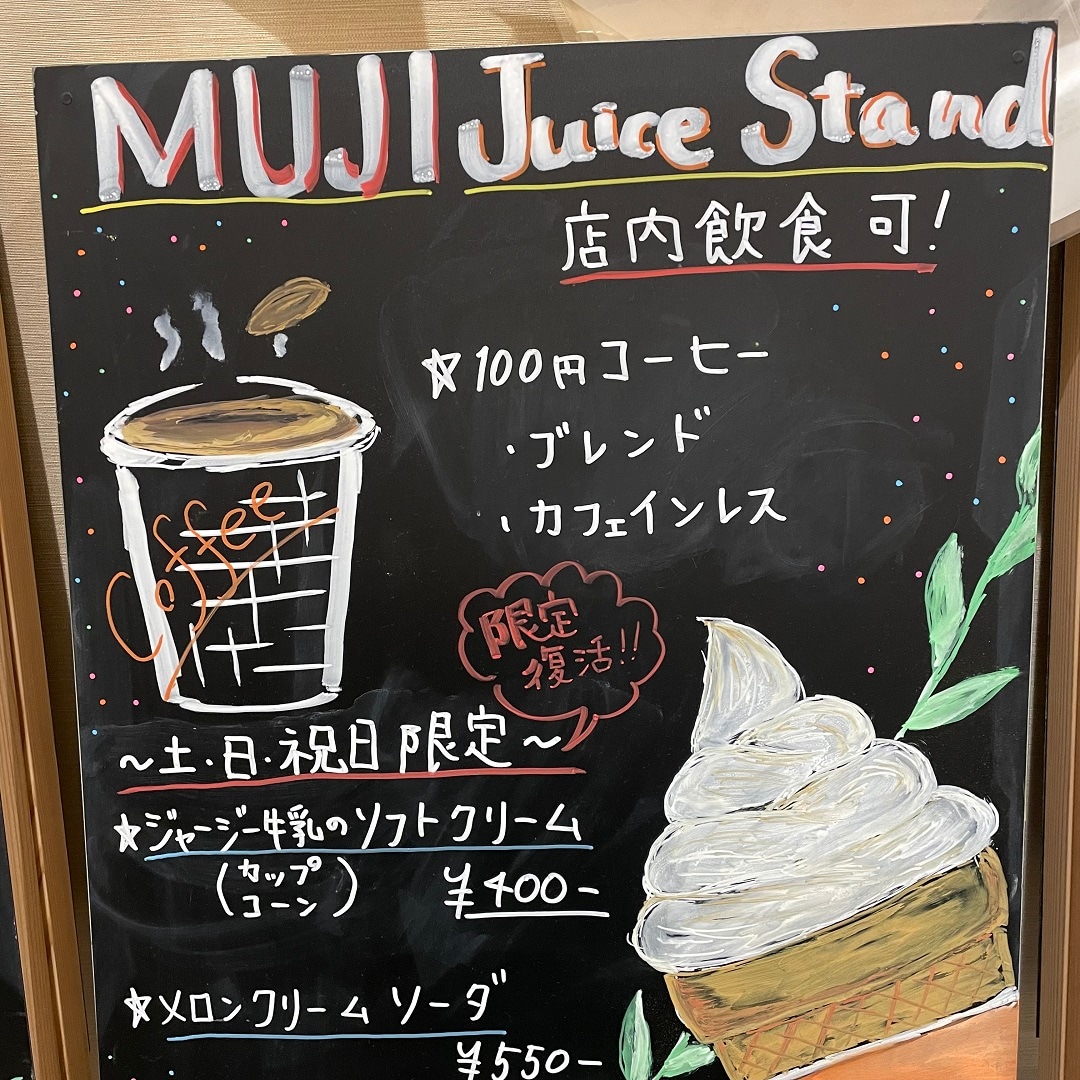 MUJI Juice Stand
店内飲食 可!
☆100円コーヒー
・ブレンド
・カフェインレス
Coffee
限定
復活!!
~土・日・祝日限定~
☆ジャージー牛乳のソフトクリーム
(カップ
コーン)
¥400-
☆メロンクリームソーダ
¥550-